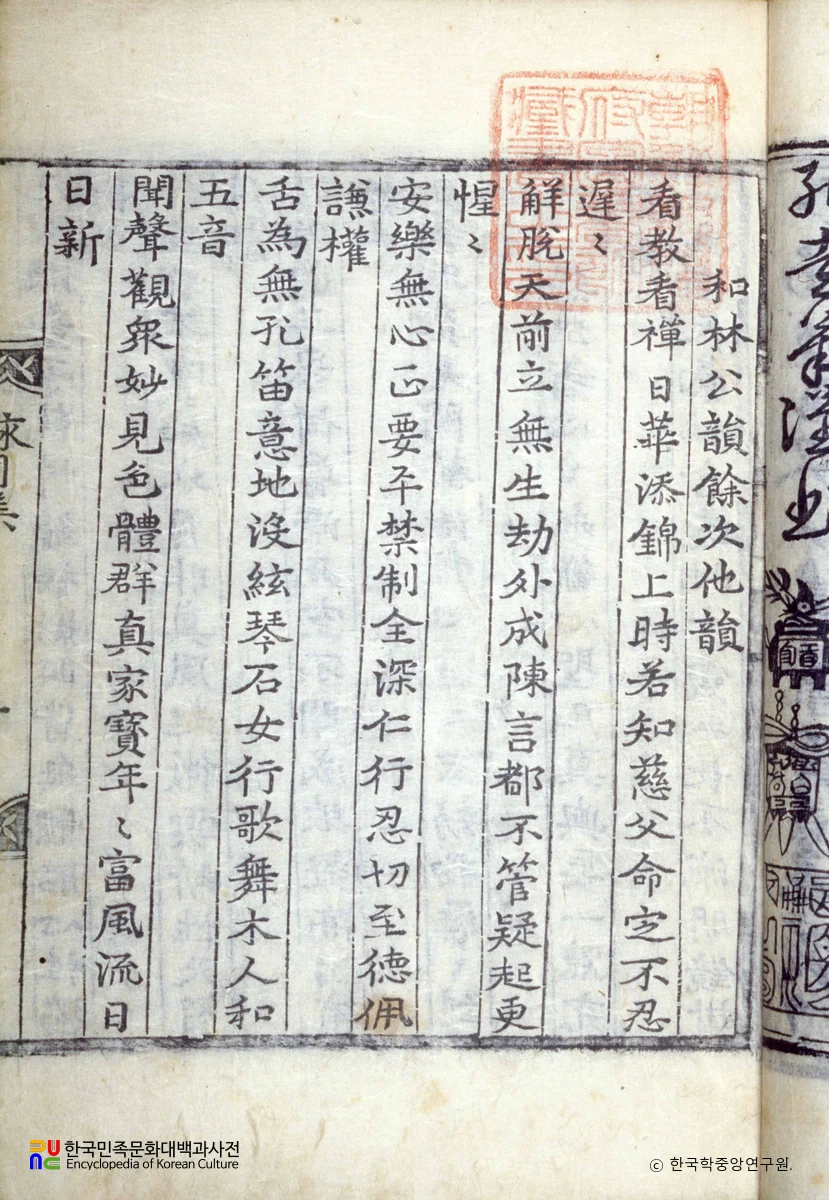 和林公韻餘次他韻
看敎看禪日華添錦上時若知慈父命定不忍
遲〻
解脫天前立無生劫外成陳言都不管疑起更
惺〻
安樂無心正要平禁制全深仁行忍切至德佩
謙權
舌為無孔笛意地沒絃琴石女行歌舞木人和
五音
聞聲觀衆妙見色體群真家寶年〻富風流日
日新
한국민족문화대백과사전
Encyclopedia of Korean Culture
© 한국학중앙연구원.